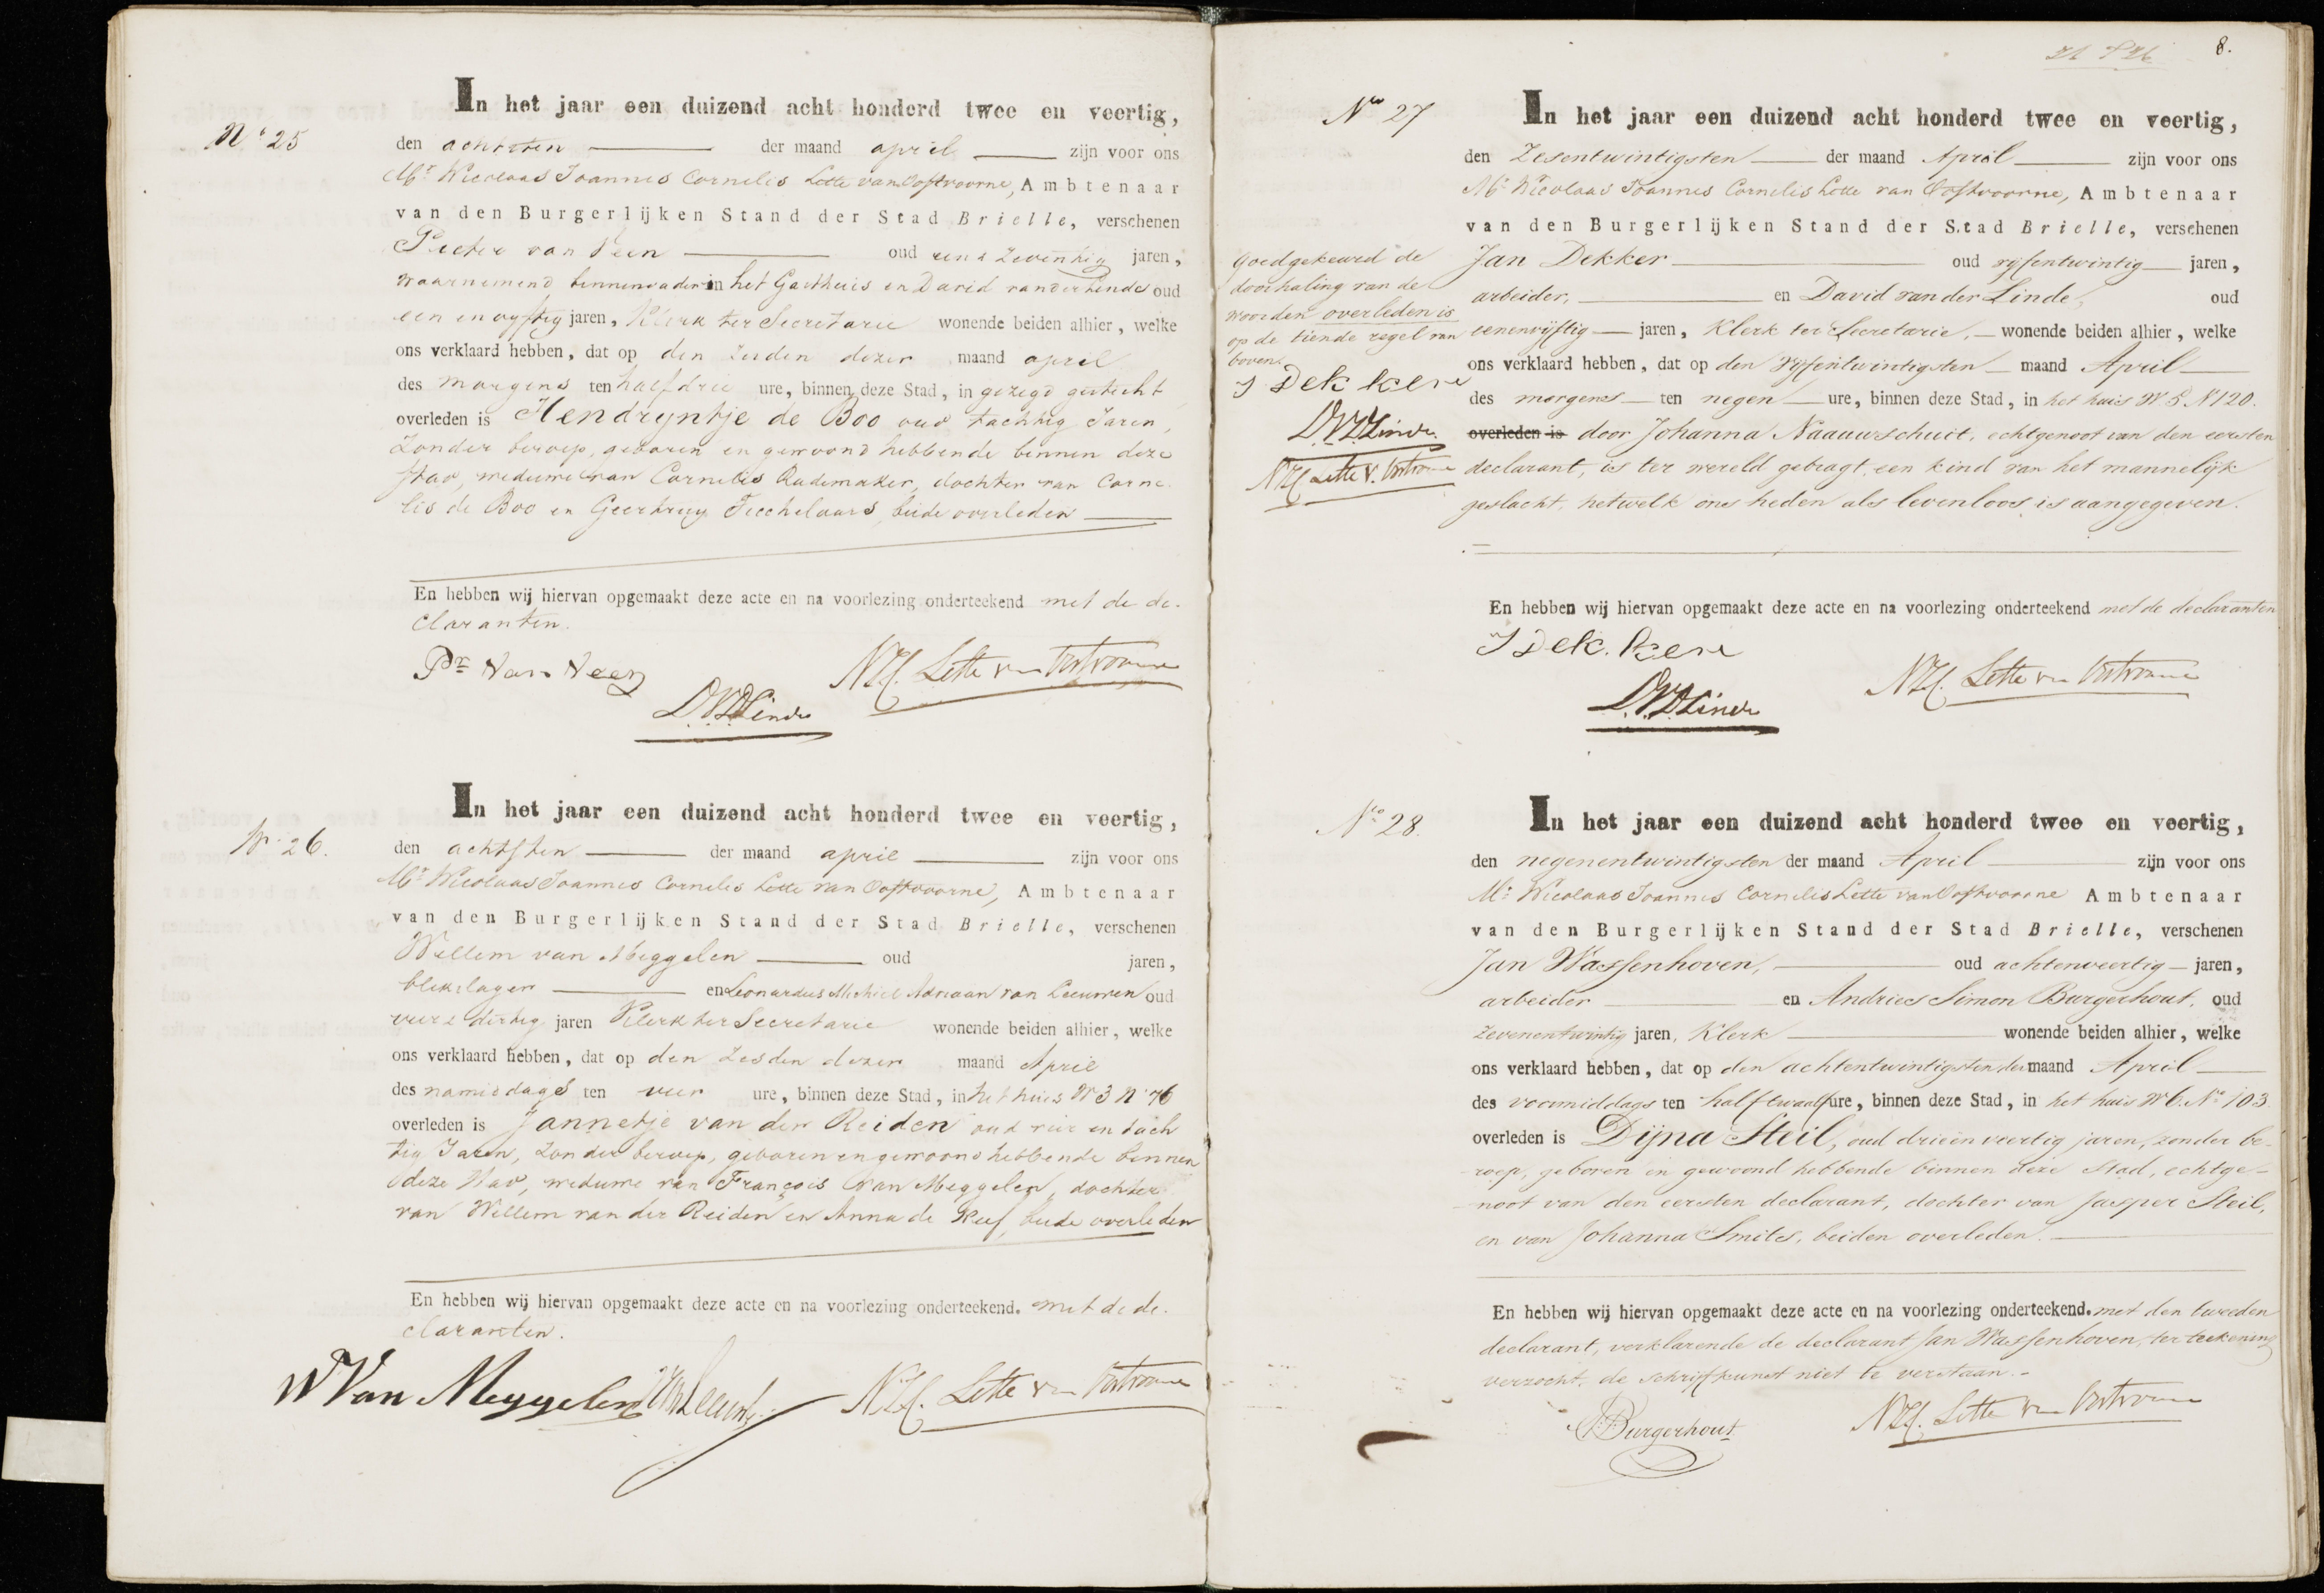 No 25
In het jaar een duizend acht honderd twee en veertig,
den achtsten der maand april zijn voor ons
Mr Nicolaas Joannes Cornelis Lette van Oostvoorne, Ambtenaar
van den Burgerlijken Stand der Stad Brielle, verschenen
Pieter van Veen oud een & zeventig jaren,
waarnemend binnenvader in het Gasthuis en David van der Linde oud
een en vyftig jaren, Klerk ter Secretarie wonende beiden alhier, welke
ons verklaard hebben, dat op den zesden dezer maand april
des morgens ten half drie ure, binnen deze Stad, in gezegd gesticht
overleden is Hendryntje de Boo oud tachtig Jaren,
zonder beroep, geboren en gewoond hebbende binnen deze
stad, weduwe van Cornelis Rademaker, dochter van Corne-
lis de Boo en Geertruy Teechelaars, beide overleden
En hebben wij hiervan opgemaakt deze acte en na voorlezing onderteekend met de de-
claranten.
Pr Van Veen
NJC. Lette van Oostvoorne
D.V.D Linde
No 26.
In het jaar een duizend acht honderd twee en veertig,
den achtsten der maand april zijn voor ons
Mr Nicolaas Joannes Cornelis Lette van Oostvoorne, Ambtenaar
van den Burgerlijken Stand der Stad Brielle, verschenen
Willem van Meggelen oud jaren,
blikslager en Leonardus Michiel Adriaan van Leeuwen oud
vier & dertig jaren Klerk ter Secretarie wonende beiden alhier, welke
ons verklaard hebben, dat op den zesden dezer maand April
des namiddags ten vier ure, binnen deze Stad, in het huis W 3 N 76
overleden is Jannetje van der Reiden oud vier en tach
tig Jaren, zonder beroep, geboren en gewoond hebbende binnen
deze Stad, weduwe van François van Meggelen, dochter
van Willem van der Reiden en Anna de Reef, beide overleden
En hebben wij hiervan opgemaakt deze acte en na voorlezing onderteekend. met de de-
claranten.
W Van Meggelen
NJC. Lette van Oostvoorne
8.
No 27
In het jaar een duizend acht honderd twee en veertig,
den Zesentwintigsten der maand April zijn voor ons
Mr Nicolaas Joannes Cornelis Lette van Oostvoorne, Ambtenaar
van den Burgerlijken Stand der Stad Brielle, verschenen
Jan Dekker oud vyfentwintig jaren,
arbeider, en David van der Linde, oud
eenenvijftig jaren, Klerk ter Secretarie, wonende beiden alhier, welke
ons verklaard hebben, dat op den vyfentwintigsten maand April
des morgens ten negen ure, binnen deze Stad, in het huis W 5 N 120.
overleden is door Johanna Naauwschuit, echtgenoot van den eersten
declarant, is ter wereld gebragt een kind van het mannelijk
geslacht, hetwelk ons heden als levenloos is aangegeven.
Goedgekeurd de
doorhaling van de
woorden overleden is
op de tiende regel van
boven.
J Dekker
D.V.D Linde.
NJC Lette v. Oostvoorne
En hebben wij hiervan opgemaakt deze acte en na voorlezing onderteekend met de declaranten
J Dekker
NJC. Lette van Oostvoorne
D.V.D Linde
No 28.
In het jaar een duizend acht honderd twee en veertig,
den negenentwintigsten der maand April zijn voor ons
Mr Nicolaas Joannes Cornelis Lette van Oostvoorne Ambtenaar
van den Burgerlijken Stand der Stad Brielle, verschenen
Jan Wassenhoven, oud achtenveertig jaren,
arbeider en Andries Simon Burgerhout, oud
zevenentwintig jaren, Klerk wonende beiden alhier, welke
ons verklaard hebben, dat op den achtentwintigsten der maand April
des voormiddags ten half twaalf ure, binnen deze Stad, in het huis W 6. No 103
overleden is Dijna Steil, oud drieënveertig jaren, zonder be-
roep, geboren en gewoond hebbende binnen deze Stad, echtge-
noot van den eersten declarant, dochter van Jasper Steil,
en van Johanna Smits, beiden overleden.
En hebben wij hiervan opgemaakt deze acte en na voorlezing onderteekend. met den tweeden
declarant, verklarende de declarant Jan Wassenhoven, ter teekening
verzocht, de schrijfkunst niet te verstaan.
Burgerhout
NJC. Lette van Oostvoorne